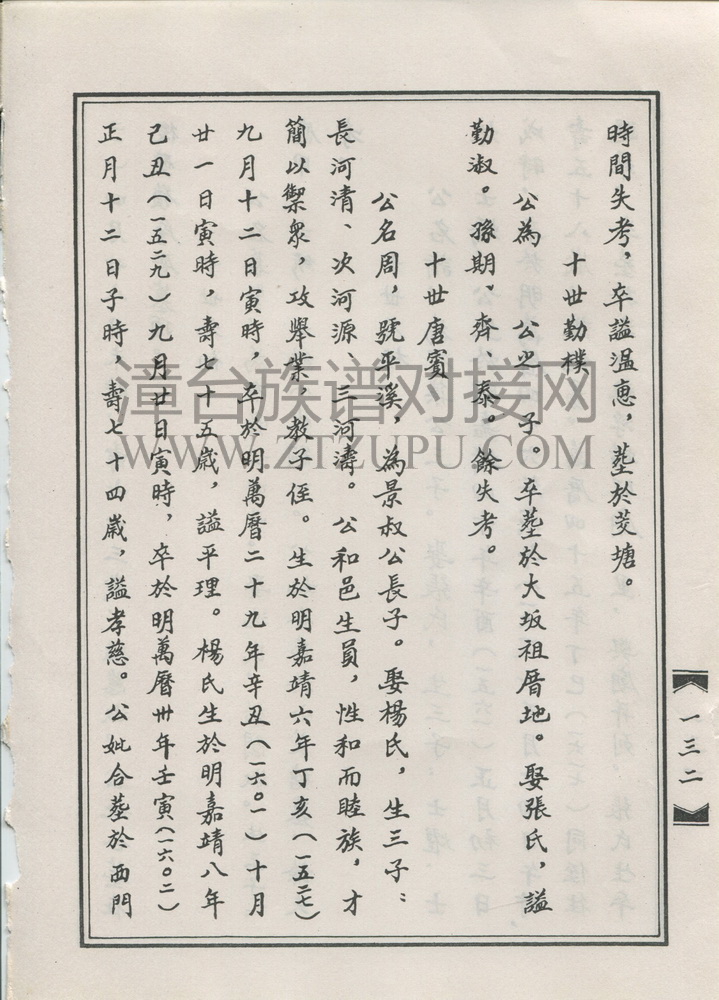 時間失考，卒謚温惠，塟於茭塘。
十世勤樸
公為　　公之　子。卒塟於大坂祖厝地。娶張氏，謚
勤淑。孫期、齊、泰。餘失考。
十世唐賓
公名周，號平溪，為景叔公長子。娶楊氏，生三子：
長河清、次河源、三河濤。公和邑生員，性和而睦族，才
簡以禦衆，攻舉業，教子侄。生於明嘉靖六年丁亥（一五二七）
九月十二日寅時，卒於明萬曆二十九年辛丑（一六〇一）十月
廿一日寅時，壽七十五歲，謚平理。楊氏生於明嘉靖八年
己丑（一五二九）九月廿日寅時，卒於明萬曆卅年壬寅（一六〇二）
正月十二日子時，壽七十四歲，謚孝慈。公妣合塟於西門
一三二
漳台族谱对接网
WWW.ZTZUPU.COM